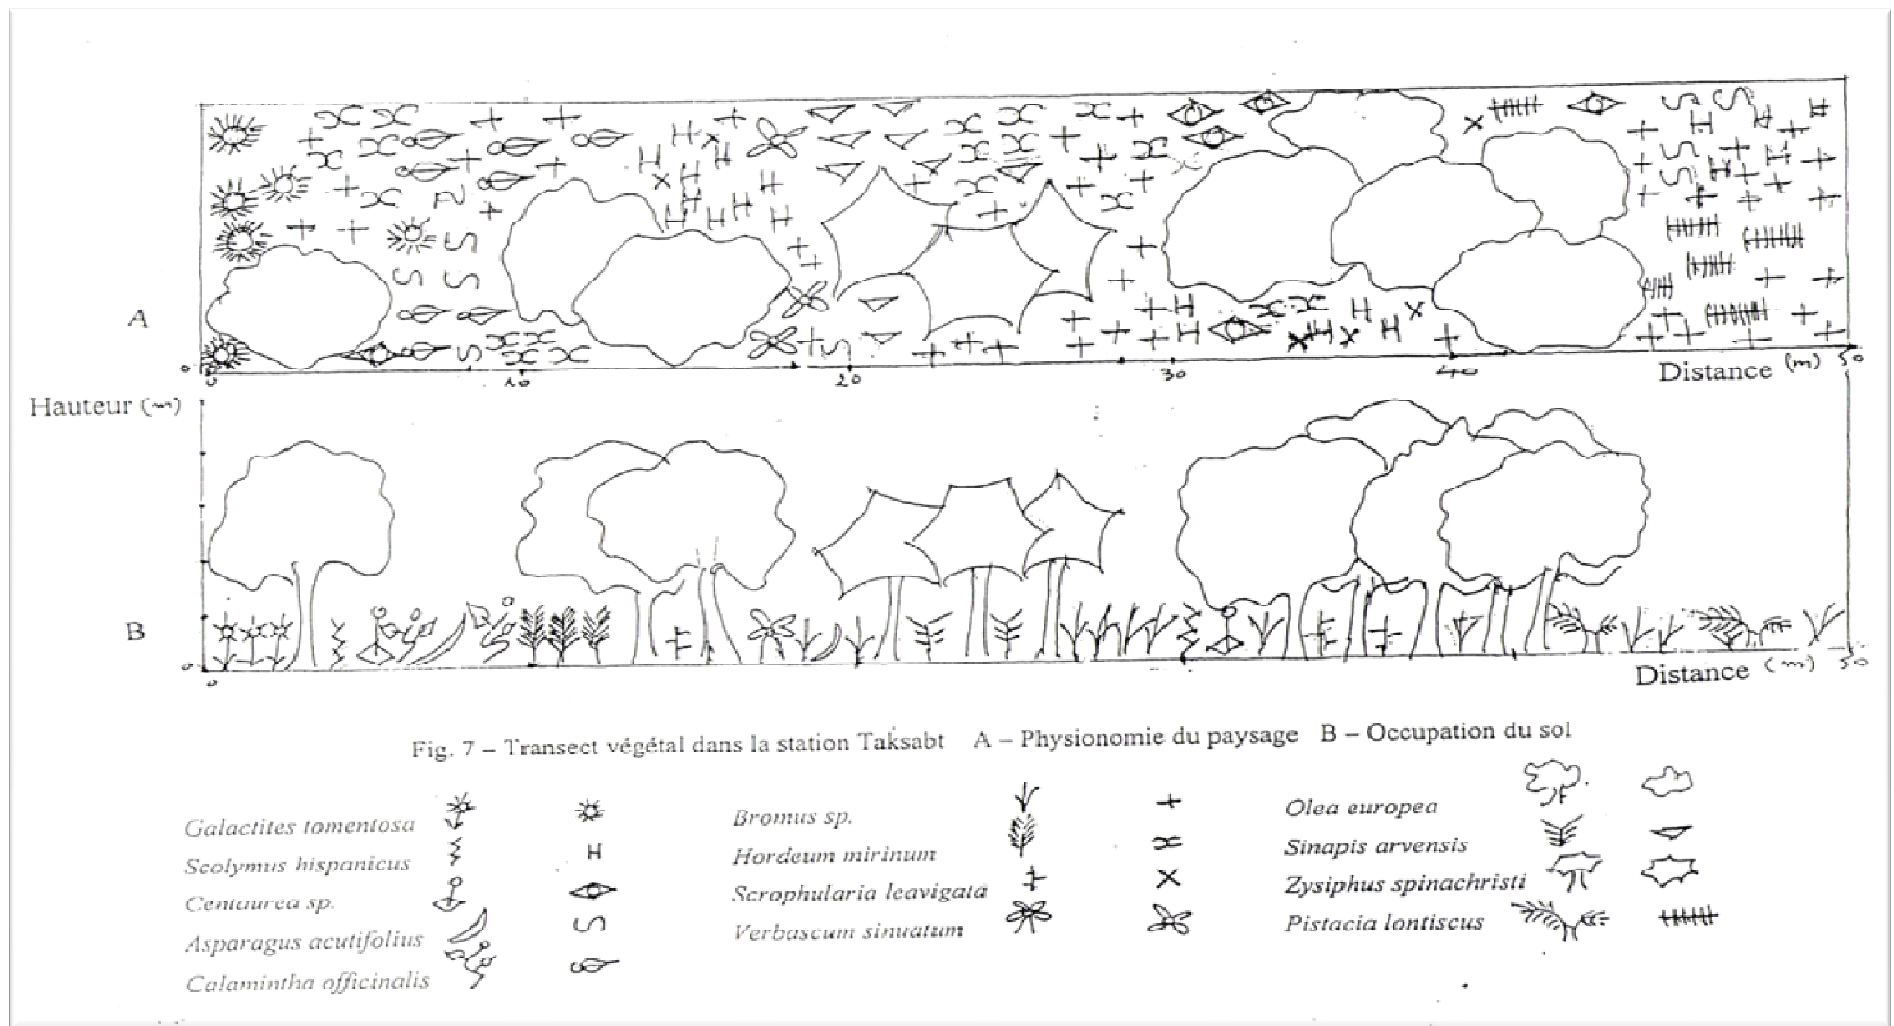 A
0 0 10 20 30 40 Distance (m) 50
Hauteur (m)
B
0
0 Distance (m) 50
Fig. 7 – Transect végétal dans la station Taksabt A – Physionomie du paysage B – Occupation du sol
Galactites tomentosa
Scolymus hispanicus
Centaurea sp.
Asparagus acutifolius
Calamintha officinalis
Bromus sp.
Hordeum mirinum
Scrophularia leavigata
Verbascum sinuatum
Olea europea
Sinapis arvensis
Zysiphus spinachristi
Pistacia lontiscus